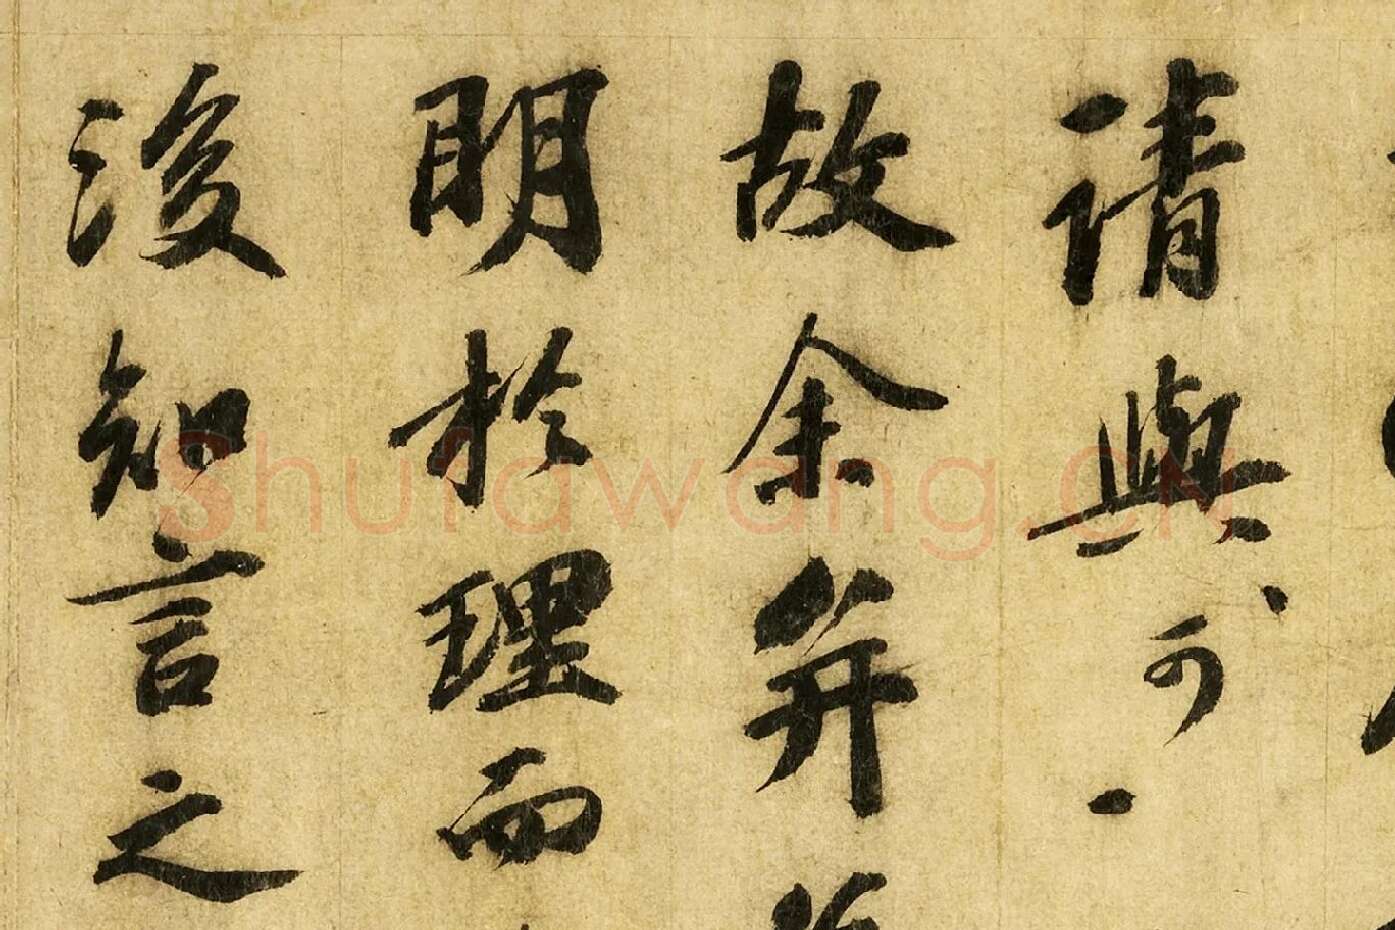 請與可
故余并
明於理而
後知言之
Shufawang.CN